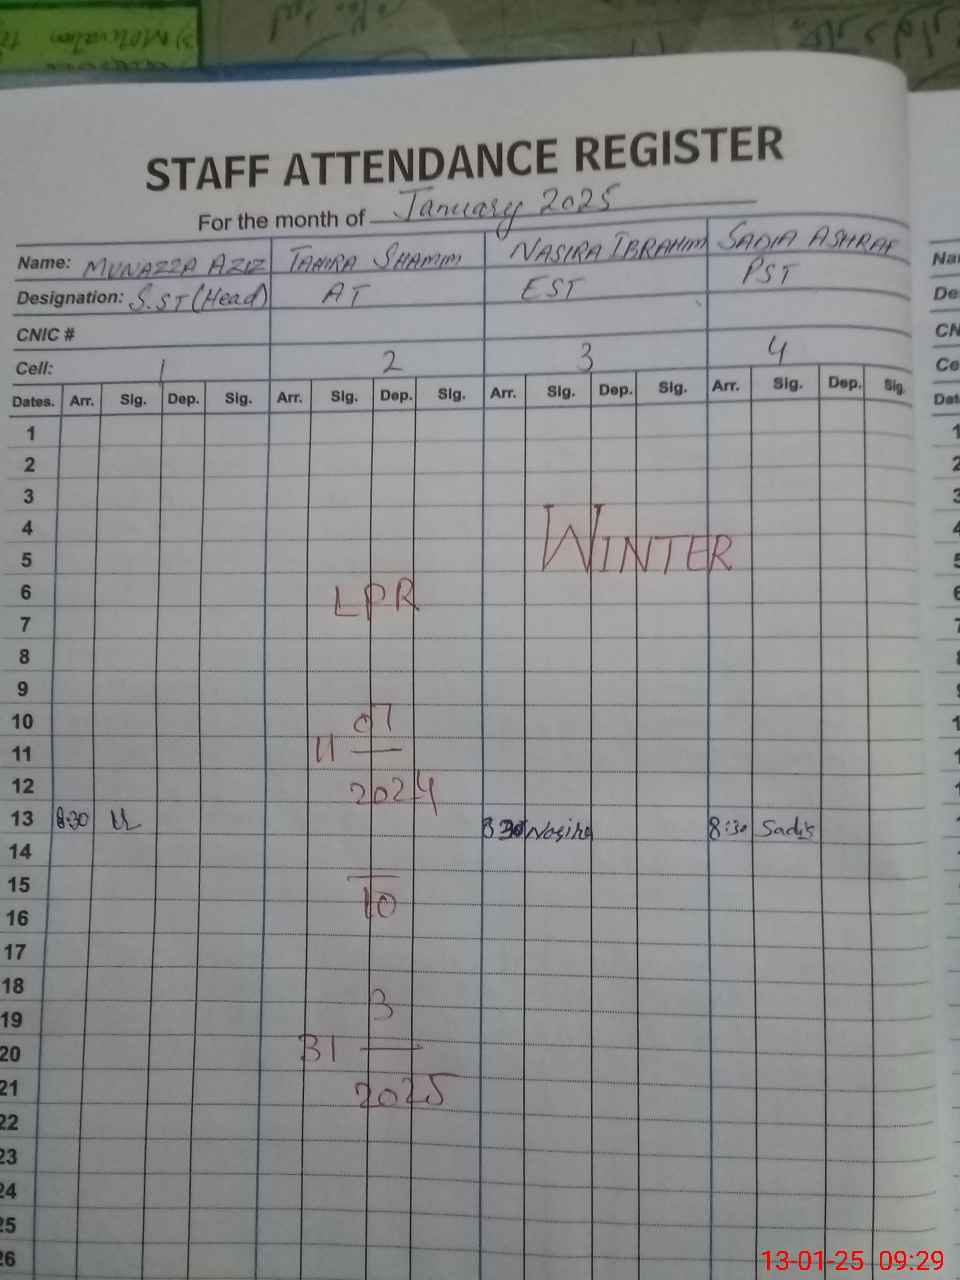 3) Motivation
STAFF ATTENDANCE REGISTER
For the month of January 2025
Name: MUNAZZA AZIZ TAHIRA SHAMIM NASIRA IBRAHIM SADIA ASHRAF
Designation: S.ST (Head) AT EST PST
CNIC #
Cell: 1 2 3 4
Dates. Arr. Sig. Dep. Sig. Arr. Sig. Dep. Sig. Arr. Sig. Dep. Sig. Arr. Sig. Dep. Sig.
1
2
3
4
WINTER
5
6 LPR
7
8
9
10 07
11 11
12 2024
13 8:30 8:30 Sadia
14
15
16 10
17
18
19 3
20 31
21 2025
22
23
24
25
26
13-01-25 09:29